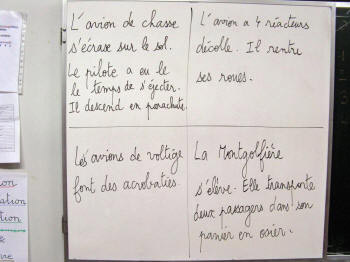 L'avion de chasse
s'écrase sur le sol.
Le pilote a eu le
le temps de s'éjecter.
Il descend en parachute.
L'avion a 4 réacteurs
décolle. Il rentre
ses roues.
Les avions de voltige
font des acrobaties.
La Montgolfière
s'élève. Elle transporte
deux passagers dans son
panier en osier.